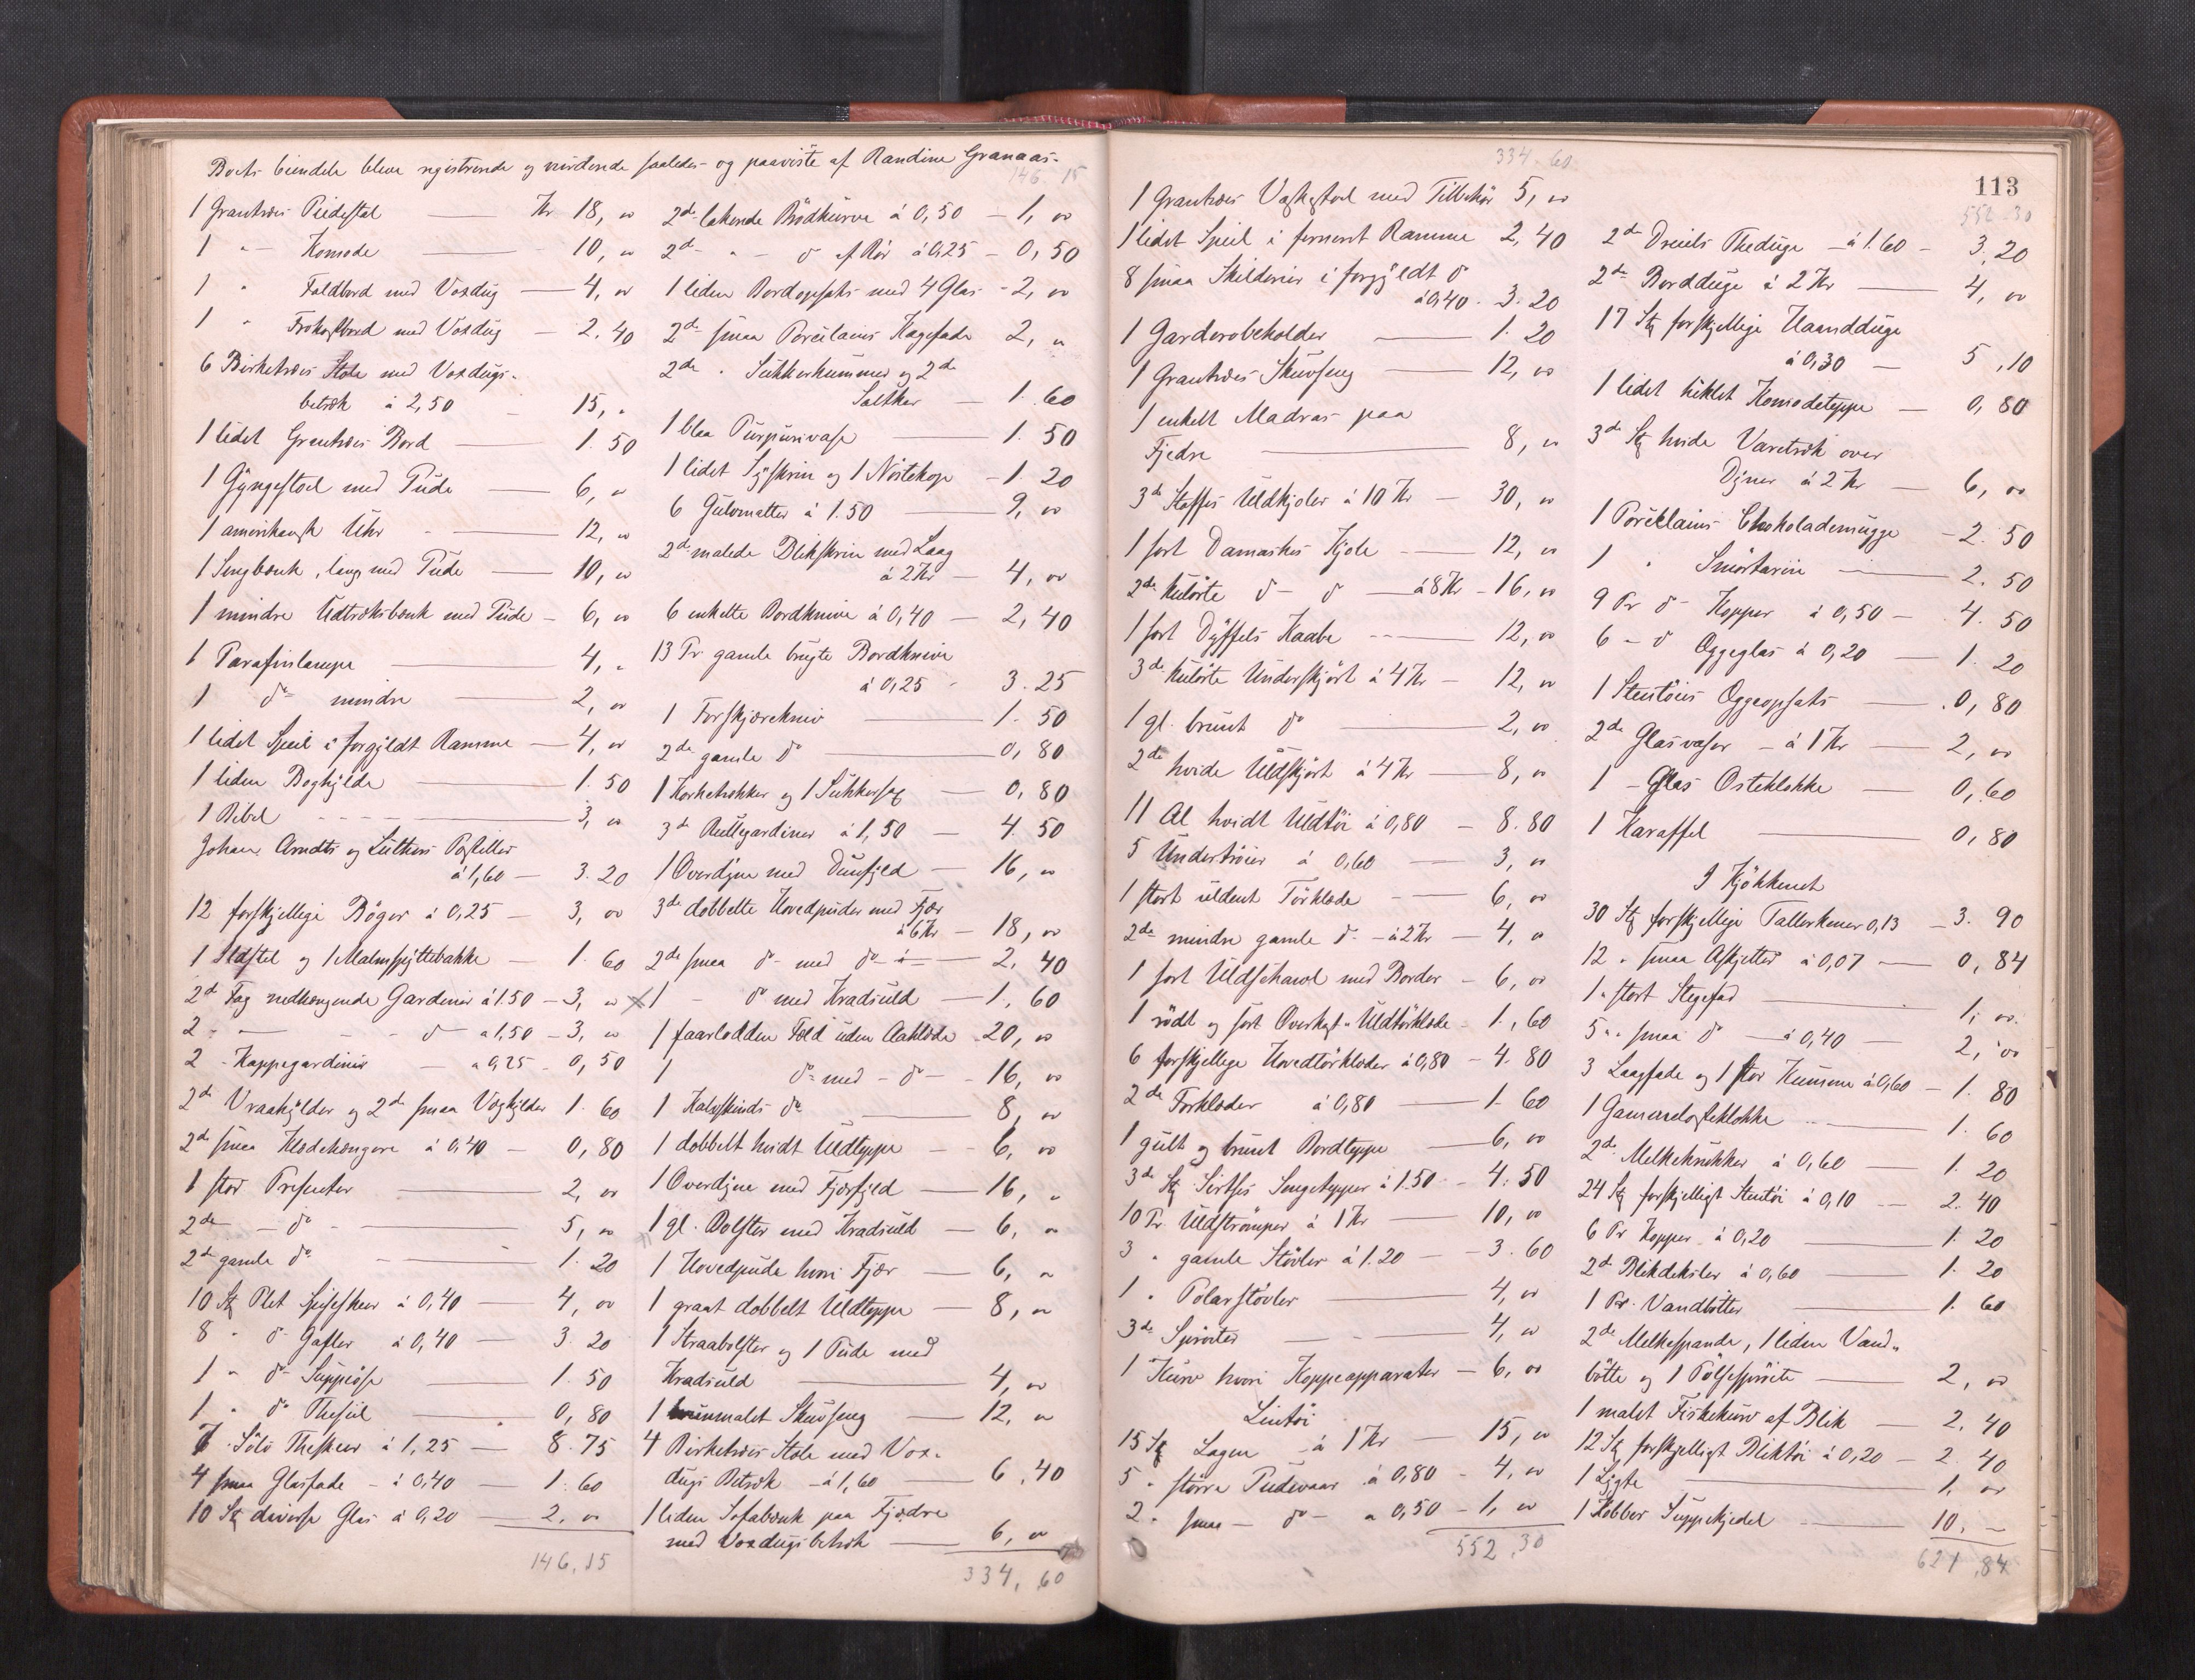 Boets eiendele bleve registrerede og vurderede saaledes og paaviste af Randine Granaas.
1 Grantræes Piedestal Kr 18, 00
1 " Komode 10, 00
1 " Foldbord med Voxdug 4, 00
1 " Frokostbord med Voxdug 2. 40
6 Birketræes Stole med Voxdugs-
betræk à 2,50 15, "
1 lidet Grantræes Bord 1. 50
1 Gyngestoel med Pude 6, 00
1 amerikansk Uhr 12, 00
1 Sengbænk, lang med Pude 10, 00
1 mindre Udtræksbænk med Pude 6, 00
1 Parafinlampe 4, "
1 do mindre 2, 00
1 lidet Speil i forgyldt Ramme 4, 00
1 liden Boghylde 1. 50
1 Bibel 3, 00
Johan Arndts og Luthers Postiller
à 1,60 3. 20
12 forskjellige Bøger à 0,25 3, 00
1 Ildstel og 1 Malmspyttebakke 1. 60
2de Fag nedhængende Gardiner à 1.50 3, 00
2 " do à 1,50 3, 00
2 Kappegardiner à 0,25 0, 50
2de Vraahylder og 2de smaa Væghylder 1. 60
2de smaa Klædehængere à 0,40 0, 80
1 stor Presenter 2, 00
2de do 5, 00
2de gamle do 1. 20
10 Stk Plet Spiseskeer à 0,40 4, 00
8 " do Gafler à 0,40 3. 20
1 " do Suppeøse 1. 50
1 " do Thesiel 0, 80
7 Sølv Theskeer à 1,25 8. 75
4 smaa Glasfade à 0,40 1. 60
10 Stk diverse Glas à 0,20 2. 00
146,15
146 15
2de lakerede Brødkurve à 0,50 1, 00
2de " do af Rør à 0,25 0, 50
1 liden Bordopsats med 4 Glas 2, 00
2de smaa Porcelains Kagefade 2, "
2de " Sukkerkummer og 2de
Saltkar 1. 60
1 blaa Purpurivase 1. 50
1 lidet Syskrin og 1 Nøstekop 1. 20
6 Gulvmatter à 1.50 9, 00
2de malede Blikskrin med Laag
à 2 Kr 4, 00
6 enkelte Bordknive à 0,40 2, 40
13 Pr gamle brugte Bordknive
à 0,25 3. 25
1 Forskjærekniv 1. 50
2de gamle do 0, 80
1 Korketrækker og 1 Sukkersax 0, 80
3de Rullegardiner à 1,50 4. 50
1 Overdyne med Dunfjed 16, 00
3de dobbelte Hovedpuder med Fjær
à 6 Kr 18, 00
2de smaa do med do 2, 40
1 do med Kradsuld 1. 60
1 faarlodden Fæld uden Aaklæde 20, 00
1 do med do 16, 00
1 Kalveskinds do 8, 00
1 dobbelt hvidt Uldteppe 6, 00
1 Overdyne med Fjærfjed 16, "
1 gl. Bolster med Kradsuld 6, "
1 Hovedpude hvori Fjær 6, "
1 graat dobbelt Uldteppe 8, "
1 Straabolster og 1 Pude med
Kradsuld 4, 00
1 brunmalet Skuvseng 12, "
4 Birketræes Stole med Vox-
dugs Betræk à 1,60 6. 40
1 liden Sofabænk paa Fjædre
med Voxdugsbetræk 6, 00
334, 60
334. 60
1 Grantræes Vaskestol med Tilbehør 5, 00
1 lidet Speil i ferneret Ramme 2, 40
8 smaa Skilderier i forgyldt do
à 0,40 3. 20
1 Garderobeholder 1. 20
1 Grantræes Skuvseng 12, 00
1 enkelt Madras paa
Fjedre 8, 00
3de Stoffes Uldkjoler à 10 Kr 30, 00
1 sort Damaskes Kjole 12, 00
2de kulørte do do à 8 Kr 16, 00
1 sort Dyffels Kaabe 12, 00
3de kulørte Underskjørt à 4 Kr 12, 00
1 gl. brunt do 2, 00
2de hvide Uldskjørt à 4 Kr 8, 00
11 Al hvidt Uldtøi à 0,80 8. 80
5 Undertrøier à 0,60 3, 00
1 stort uldent Tørklæde 6, 00
2de mindre gamle do à 2 Kr 4, 00
1 sort Uldschawl med Border 6, 00
1 rødt og sort Overkast Uldtørklæde 1, 60
6 forskjellige Hovedtørklæder à 0,80 4. 80
2de Forklæder à 0,80 1. 60
1 gult og brunt Bordteppe 6, 00
3de Stk Sirtses Sengetepper à 1.50 4. 50
10 Pr Uldstrømper à 1 Kr 10, 00
3 " gamle Støvler à 1.20 3. 60
1 " Polarstøvler 4, 00
3de 4, 00
1 Kurv hvori Koppeapparater 6, 00
Lintøi
15 Stk Lagen à 1 Kr 15, 00
5 " større Pudevaar à 0,80 4, 00
2 " smaa do à 0,50 1, 00
552,30
113
552 30
2de Dreiels Theduge à 1.60 3. 20
2de Bordduge à 2 Kr 4, 00
17 Stk forskjellige Haandduge
à 0,30 5, 10
1 lidet heklet Komodeteppe 0, 80
3de Stk hvide Varetræk over
Dyner à 2 Kr 6, 00
1 Porcelains Chokolademugge 2. 50
1 " Smørtarin 2. 50
9 Pr do Kopper à 0,50 4. 50
6 " do Eggeglas à 0,20 1. 20
1 Stentøies Eggeopsats 0, 80
2de Glasvaser à 1 Kr 2, 00
1 Glas Osteklokke 0, 60
1 Karaffel 0, 80
I Kjøkkenet
30 Stk forskjellige Tallerkener 0,13 3. 90
12 " smaa Asjetter à 0,07 0, 84
1 " stort Stegefad 1, 00
5 " smaa do à 0,40 2, 00
3 Laagfade og 1 stor Kumme à 0,60 1. 80
1 Gammelosteklokke 1. 60
2de Melkekrukker à 0,60 1. 20
24 Stk forskjelligt Stentøi à 0,10 2. 40
6 Pr Kopper à 0,20 1. 20
2de Blikdeksler à 0,60 1. 20
1 Pr. Vandbøtter 1. 60
2de Melkespande, 1 liden Vand-
bøtte og 1 Pølsesprøite 2, 00
1 malet Fiskekurv af Blik 2. 40
12 Stk forskjelligt Bliktøi à 0,20 2. 40
1 Lygte 1. 00
1 Kobber Suppekjedel 10. "
621,84